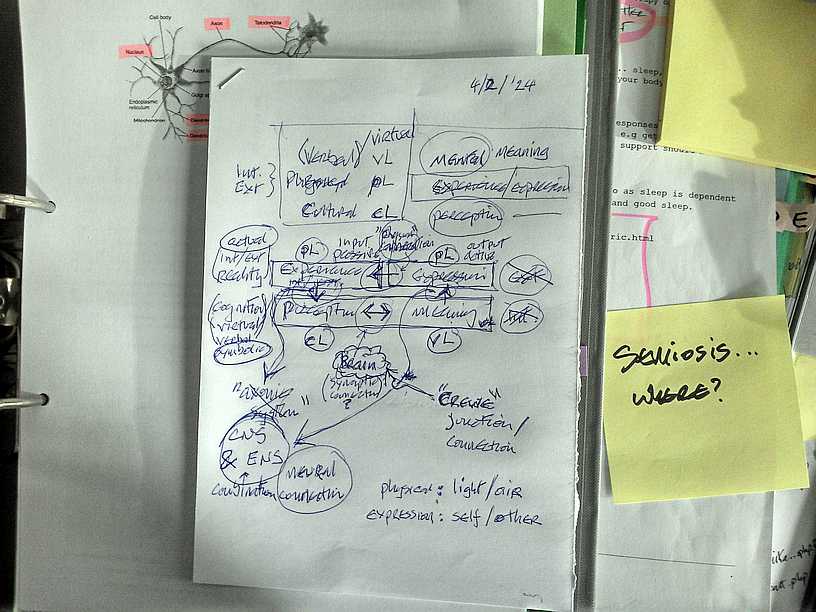 Cell body
Axon
Telodendria
Nucleus
Endoplasmic
reticulum
Mitochondrion
4/2/'24
(Verbal)/virtual
VL
mental meaning
Int.
Ext
Physical pL
EXPERIENCE/EXPRESSION
Cultural CL
perception
actual
int/ext
Reality
pL input
passive
pL output
active
EXPERIENCE
EXPRESSION
Ext
Cognition
virtual
verbal
symbolic
perception
meaning
Int.
CL
VL
Brain
(synaptic
connection)
?
"axonic
system"
"CREATE"
junction/
connection
CNS
& ENS
neural
connection
physical: light/air
EXPRESSION: self/other
SEMIOSIS...
WHERE?
.. sleep,
your body
esponses
e.g get
support should
o as sleep is dependent
and good sleep.
ric.html
E